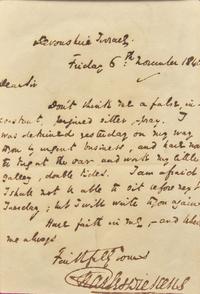 Devonshire Terrace
Friday 6th November 184
Dear Sir
Don't think me a false, in-
constant, perjured sitter, pray. I
was detained yesterday on my way
down by urgent business, and have now
to tug at the oar and work my little
galley, double tides. I am afraid
I shall not be able to sit before next
Tuesday; but I will write to you again
Have faith in me, and believe
me always
Faithfully Yours
Charles Dickens